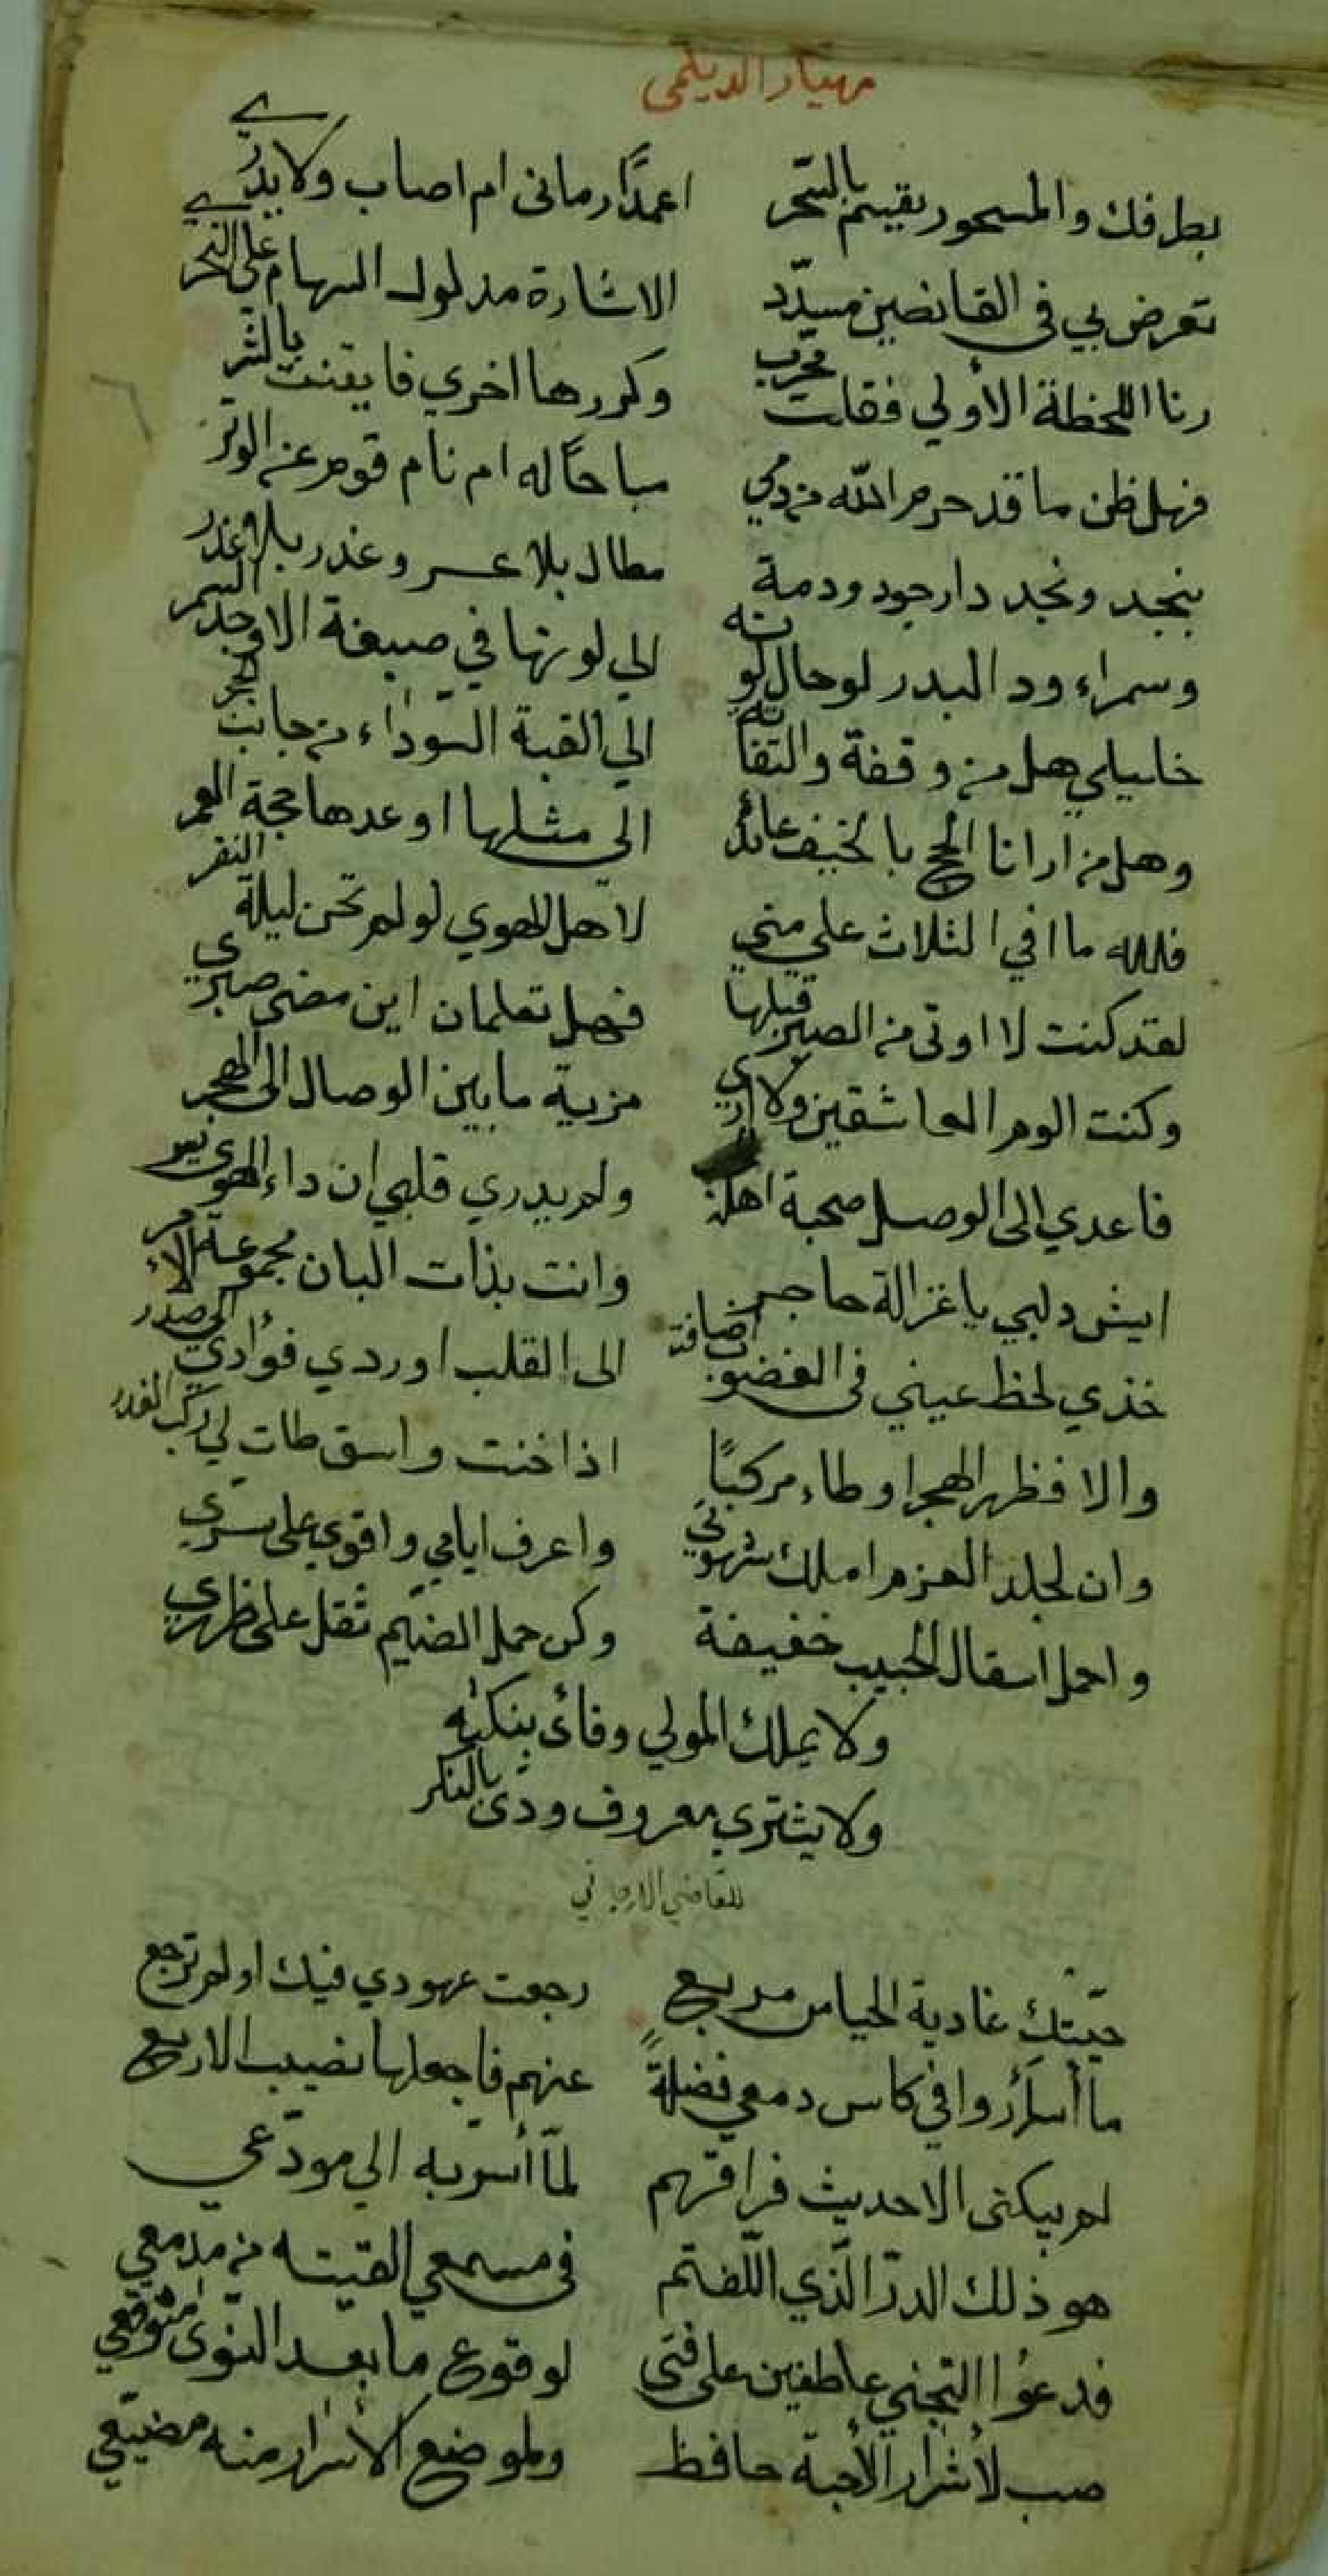 مهيار الديلمى
بطرفك والمسحور يقسم بالسحر اعمدًا رمانى ام اصاب ولا يدري
تعرض بي في القانصين مسدّد الاشارة مدلول السهام على النحر
رنا اللحظة الأولي فقلت مجرب وكررها اخري فايقنت بالشر
فهل ظن ما قد حرم الله من دمي مباحًا له ام نام قوم عن الوتر
بنجد ونجد دار جود ودمة مطال بلا عسر وغدر بلا عذر
وسمراء ود البدر لو حال لونه الي لونها في صبغة الاوجه السمر
خليلي هل من وقفة والتفاتة الي القبة السوداء من جانب الحجر
وهل من ارانا الحج بالخيف عائد الى مثلها او عدها حجة العمر
فلله ما افي الثلاث على مني لاهل الهوي لو لم تحن ليلة النفر
لقد كنت لا اوتى من الصبر قبلها فهل تعلمان اين مضى صبري
وكنت الوم العاشقين ولا اري مزية ما بين الوصال الى الهجر
فاعدي الى الوصل صحبة اهله ولم يدري قلبي ان داء الهوى يسر
ايشر دلبي يا غزالة حاجر وانت بذات البان مجموعة الامر
خذي لحظ عيني في الغضوب اضافته الى القلب او ردي فؤادي الى صدر
والا فظهر الهجر اوطاء مركبًا اذا خنت واسق طات لي ركب الغدر
وان لجلد العزم املك شهوتي واعرف ايامي واقوي على سري
واحمل اسقال الحبيب خفيفة وكن حمل الضيم ثقل على ظهري
ولا يملك المولي وفائى بنكبه
ولا يشتري معروف ودى بالنكر
للقاضي الارجاني
حيّتك غادية الحيا من مربع رجعت عهودي فيك او لم ترجع
ما أسأروا في كاس دمعي فضلةً عنهم فاجعلها نصيب الاربع
لم يبكنى الا حديث فراقهم لمّا أسرّ به الي مودّعي
هو ذلك الدرّ الّذي اللّفتم في مسمعي القيته من مدمعي
فدعوا التجني عاطفين على فتى لوقوع ما بعد النوى متوقعي
صب لأسرار الأحبة حافظ ولموضع الأسرار منه مضيّعي